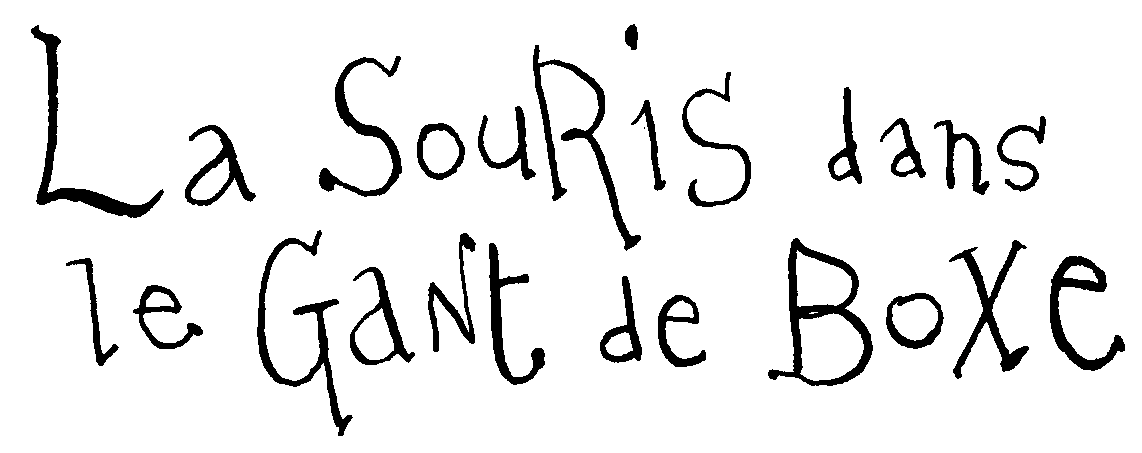 La SouRiS dans
le GaNt de BoXe